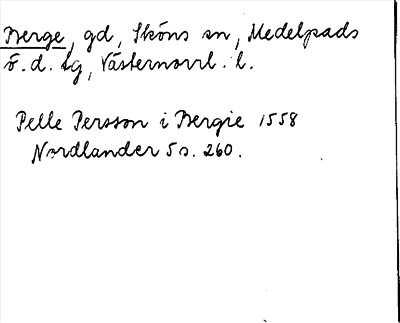 Berge, gd, Sköns sn, Medelpads
ö. d. tg, Västernorrl. l.
Pelle Persson i Bergie 1558
Nordlander 5 s. 260.